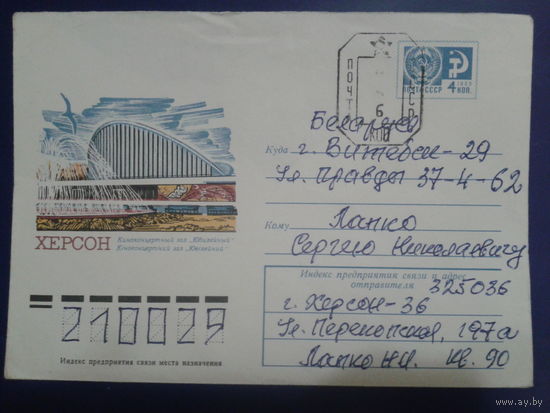 ПОЧТА
6
КОП
ПОЧТА СССР
1966
4 КОП.
Беларусь
Куда г. Витебск-29
Ул. Правды 37-4-62
Кому Лапко
Сергею Николаевичу
ХЕРСОН
Киноконцертный зал „Юбилейный"
Кіноконцертний зал „Ювілейний"
Индекс предприятия связи и адрес
отправителя 325036
г. Херсон-36
Ул. Перекопская, 197а
Лапко Н.И. кв. 90
210029
Индекс предприятия связи места назначения
www.ay.by